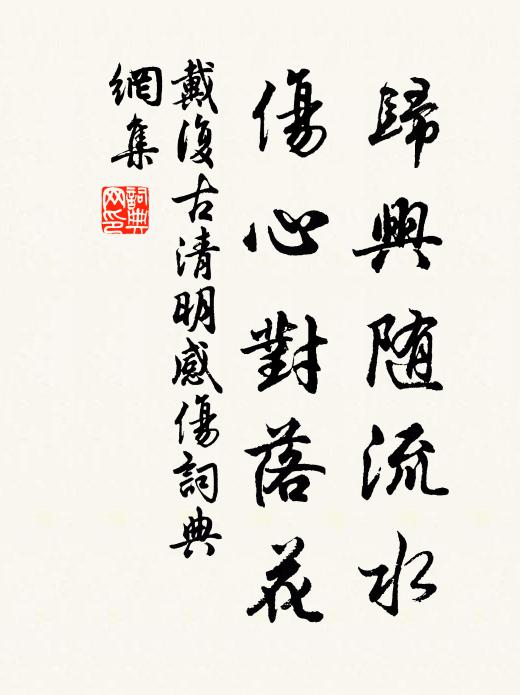 歸興随流水
傷心對落花
戴復古清明感傷詞典
網集
詞典
网印